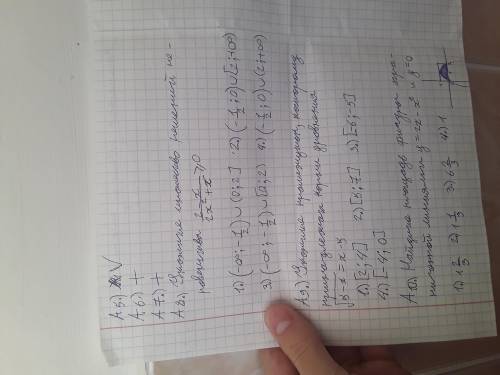 А5.) V
А.6.) +
А.7.) +
А.8.) Укажите множество решений не-
равенства (2-x)/(2x²+x) ≥ 0
1.) (-∞; -1/2) ∪ (0; 2] 2.) (-1/2; 0) ∪ [2; +∞)
3.) (-∞; -1/2) ∪ [0; 2) 4.) (-1/2; 0) ∪ (2; +∞)
А9.) Укажите промежуток, которому
принадлежат корни уравнения
1.) [2; 4] 2.) [5; 7] 3.) [-6; -5]
4.) [-4; 0]
А10.) Найдите площадь фигуры огра-
ниченной линиями y=2x-x² и y=0
1.) 1 2/3 2.) 1 1/3 3.) 6 2/3 4.) 1